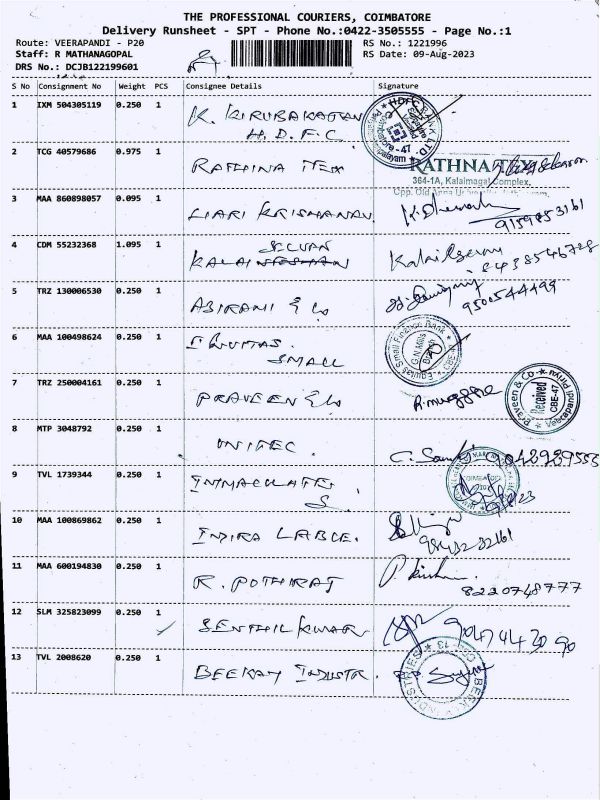 THE PROFESSIONAL COURIERS, COIMBATORE
Delivery Runsheet - SPT - Phone No.:0422-3505555 - Page No.:1
Route: VEERAPANDI - P20
Staff: R MATHANAGOPAL
DRS No.: DCJB122199601
RS No.: 1221996
RS Date: 09-Aug-2023
S No Consignment No Weight PCS Consignee Details Signature
1 IXM 504305119 0.250 1 K. KIRUBAKARAN
H.D.F.C
HDFC BANK LTD.
2 TCG 40579686 0.975 1 RATHNA TEX
RATHNA TEX
364-1A, Kalaimagal Complex,
3 MAA 860898057 0.095 1 HARI KRISHANAN
9159853161
4 CDM 55232368 1.095 1 SELVAN
KALAI
5 TRZ 130006530 0.250 1 ABIRAMI & Co
9500544499
6 MAA 100498624 0.250 1 EQUITAS.
SMALL
Equitas Small Finance Bank
G.N.Mills
Branch
7 TRZ 250004161 0.250 1 PRAVEEN & Co
R.murugesa
Praveen & Co
Received
CBE-47
Veerapandi
8 MTP 3048792 0.250 1 UNITEC.
9 TVL 1739344 0.250 1 INMACULATE
S.
10 MAA 100869862 0.250 1 INDIRA LABLE.
11 MAA 600194830 0.250 1 R. POTHIRAJ
8220748777
12 SLM 325823099 0.250 1 SENTHIL KUMAR
9047442090
13 TVL 2008620 0.250 1 BEEKAY INDUSTR.
BEEKAY INDUSTRIES